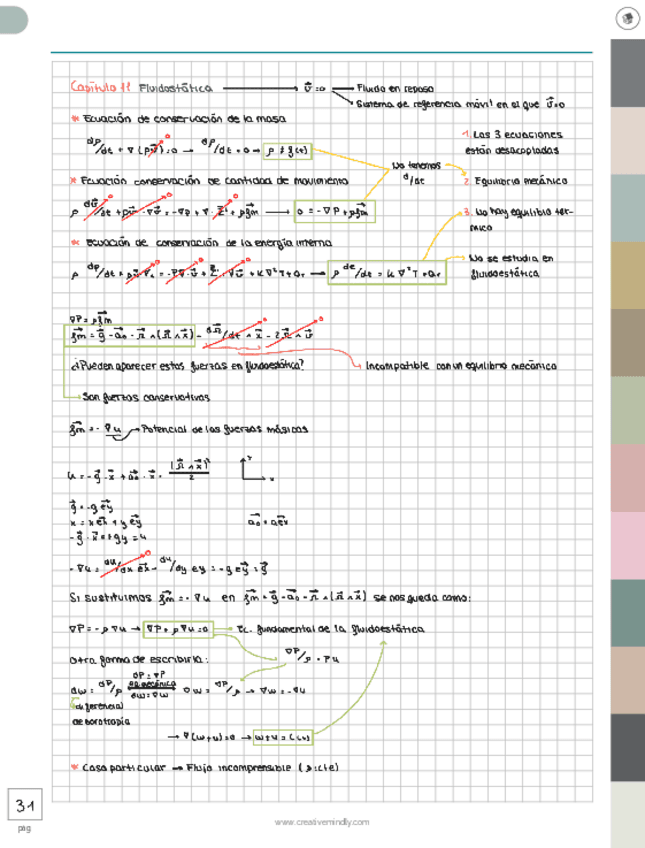 Capítulo 11 Fluidostática → v⃗=0 → Fluido en reposo
→ Sistema de referencia móvil en el que v⃗=0
* Ecuación de conservación de la masa
dρ/dt + ∇(ρv⃗)=0 → dρ/dt = 0 → ρ ≠ f(t)
1. Las 3 ecuaciones
están desacopladas
No tenemos
d/dt
* Ecuación conservación de cantidad de movimiento
2. Equilibrio mecánico
→ 0 = -∇P + ρf⃗m
3. No hay equilibrio tér-
mico
* Ecuación de conservación de la energía interna
→ ρ de/dt = K ∇²T + Qr
No se estudia en
fluidostática
∇P = ρf⃗m
f⃗m = g⃗ - a⃗o - Ω⃗ ∧ (Ω⃗ ∧ x⃗) - dΩ⃗/dt ∧ x⃗ - 2Ω⃗ ∧ v⃗
¿Pueden aparecer estas fuerzas en fluidostática?
Incompatible con un equilibrio mecánico
Son fuerzas conservativas
f⃗m = - ∇u → Potencial de las fuerzas másicas
u = - g⃗ · x⃗ + a⃗o · x⃗ - (Ω⃗ ∧ x⃗)²/2
y
x
g⃗ = -g e⃗y
x = x e⃗x + y e⃗y
a⃗o = a e⃗x
- g⃗ · x⃗ = + gy = u
- ∇u = du/dx e⃗x - du/dy ey = -g e⃗y = g⃗
Si sustituimos f⃗m = - ∇u en f⃗m = g⃗ - a⃗o - Ω⃗ ∧ (Ω⃗ ∧ x⃗) se nos queda como:
∇P = - ρ ∇u → ∇P + ρ ∇u = 0 → Ec. fundamental de la fluidostática
Otra forma de escribirla:
dP = ∇P
dw = dP/ρ
dw = ∇w
∇w = ∇P/ρ → ∇w = -∇u
diferencial
de barotropía
→ ∇(w+u) = 0 → w+u = C(t)
* Caso particular → Flujo incompresible (ρ=cte)
31
pág
www.creativemindly.com